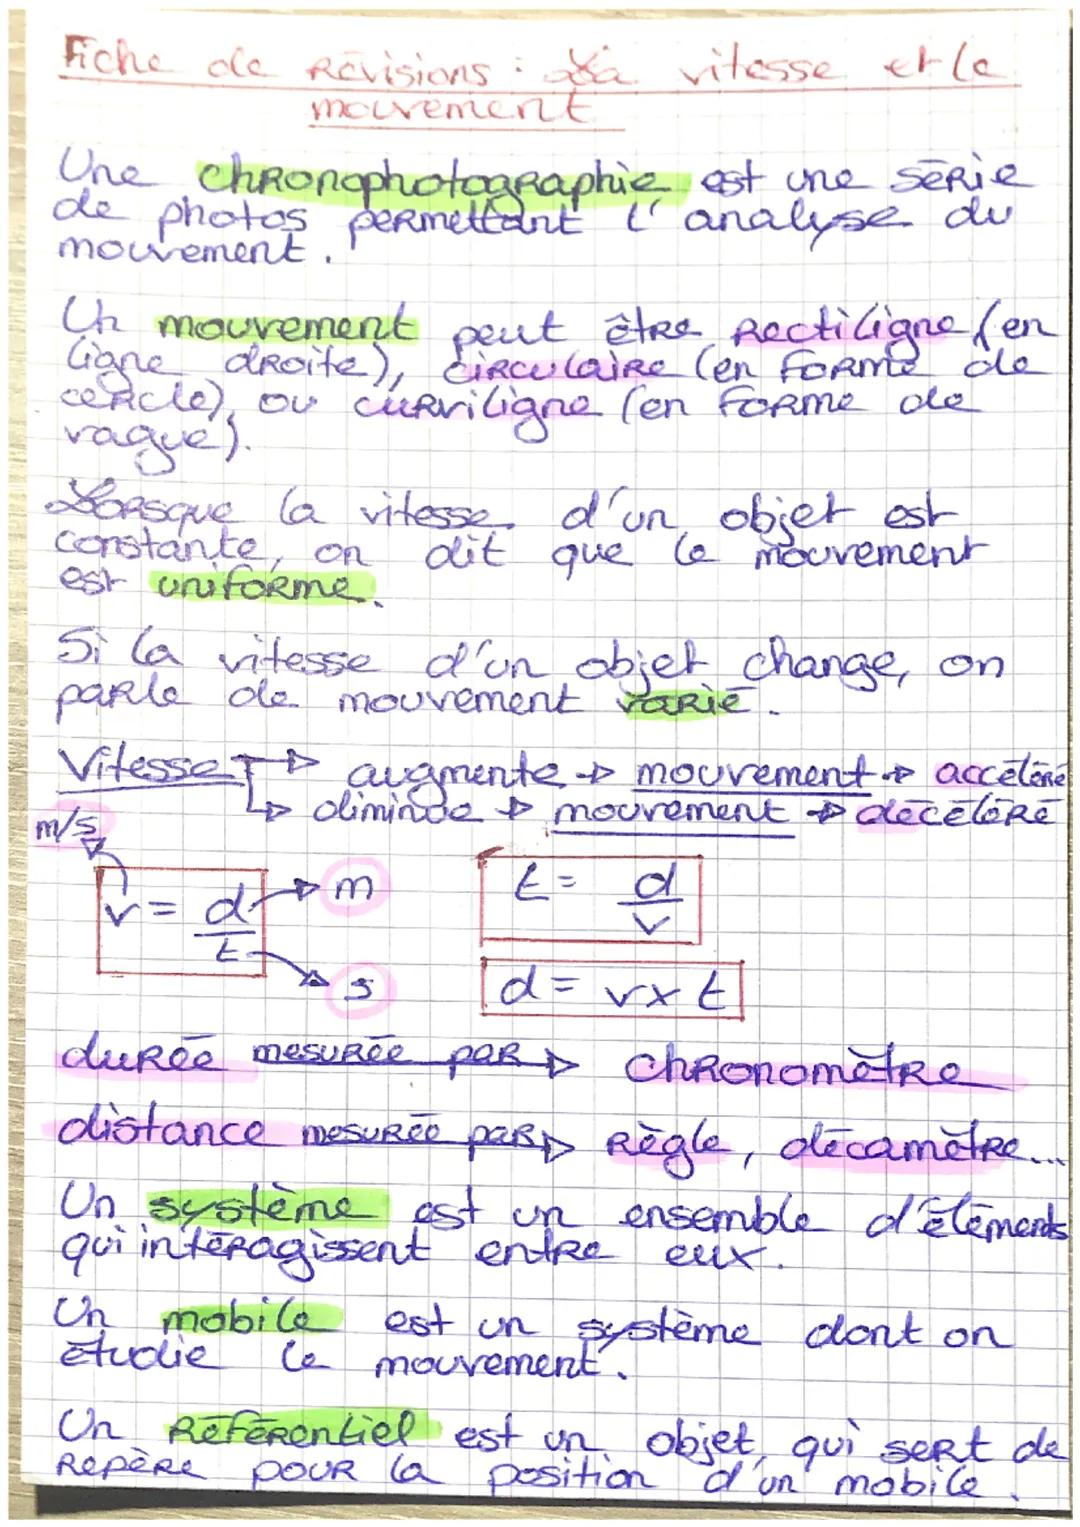 Fiche de Révisions : La vitesse et le
mouvement
Une chronophotographie est une série
de photos permettant l'analyse du
mouvement.
Un mouvement peut être rectiligne (en
ligne droite), circulaire (en forme de
cercle), ou curviligne (en forme de
vague).
Lorsque la vitesse d'un objet est
constante, on dit que le mouvement
est uniforme.
Si la vitesse d'un objet change, on
parle de mouvement varié.
Vitesse → augmente → mouvement → accéléré
→ diminue → mouvement → décéléré
m/s
v = d/t → m
→ s
t = d/v
d = v x t
durée mesurée par → chronomètre
distance mesurée par → règle, décamètre...
Un système est un ensemble d'éléments
qui intéragissent entre eux.
Un mobile est un système dont on
étudie le mouvement.
Un Référentiel est un objet, qui sert de
repère pour la position d'un mobile.